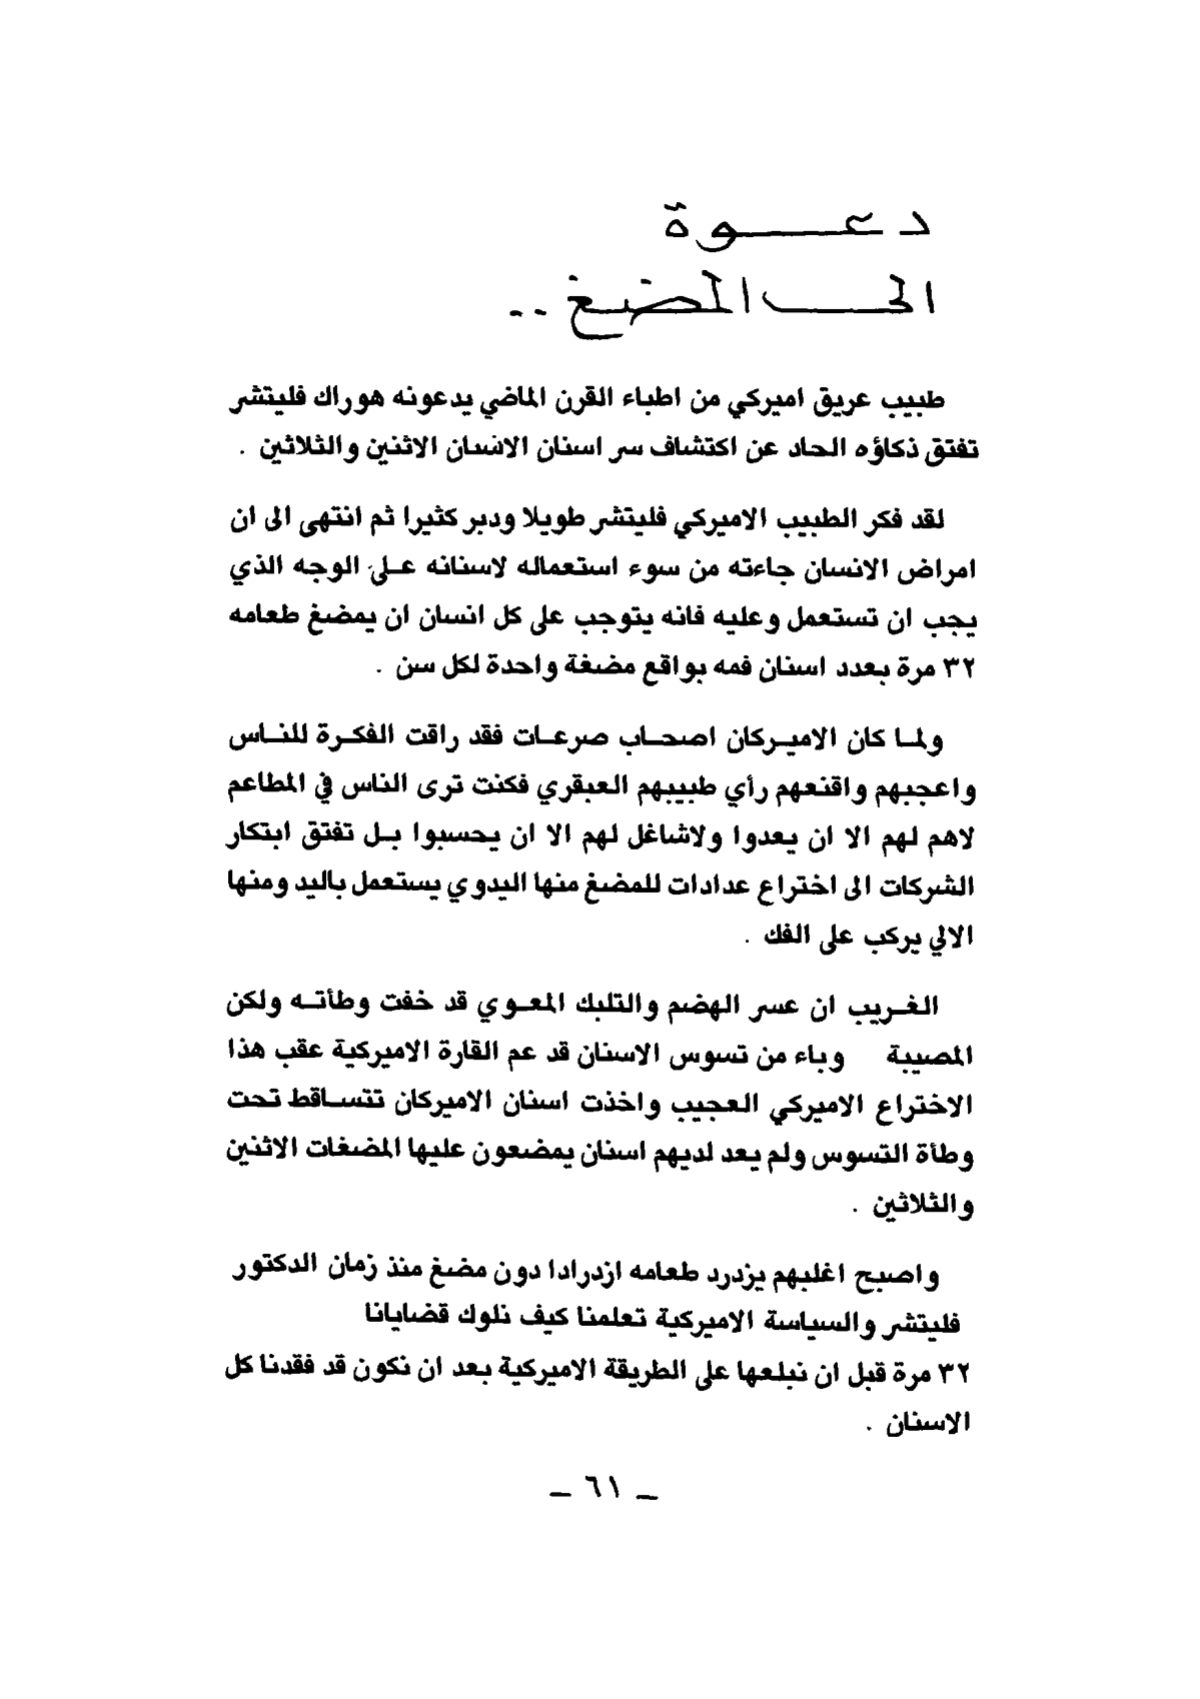 دعوة
الى المضغ ..
طبيب عريق اميركي من اطباء القرن الماضي يدعونه هوراك فليتشر
تفتق ذكاؤه الحاد عن اكتشاف سر اسنان الانسان الاثنين والثلاثين .
لقد فكر الطبيب الاميركي فليتشر طويلا ودبر كثيرا ثم انتهى الى ان
امراض الانسان جاءته من سوء استعماله لاسنانه على الوجه الذي
يجب ان تستعمل وعليه فانه يتوجب على كل انسان ان يمضغ طعامه
٣٢ مرة بعدد اسنان فمه بواقع مضغة واحدة لكل سن .
ولما كان الاميركان اصحاب صرعات فقد راقت الفكرة للناس
واعجبهم واقنعهم رأي طبيبهم العبقري فكنت ترى الناس في المطاعم
لاهم لهم الا ان يعدوا ولاشاغل لهم الا ان يحسبوا بل تفتق ابتكار
الشركات الى اختراع عدادات للمضغ منها اليدوي يستعمل باليد ومنها
الالي يركب على الفك .
الغريب ان عسر الهضم والتلبك المعوي قد خفت وطأته ولكن
المصيبة وباء من تسوس الاسنان قد عم القارة الاميركية عقب هذا
الاختراع الاميركي العجيب واخذت اسنان الاميركان تتساقط تحت
وطأة التسوس ولم يعد لديهم اسنان يمضعون عليها المضغات الاثنين
والثلاثين .
واصبح اغلبهم يزدرد طعامه ازدرادا دون مضغ منذ زمان الدكتور
فليتشر والسياسة الاميركية تعلمنا كيف نلوك قضايانا
٣٢ مرة قبل ان نبلعها على الطريقة الاميركية بعد ان نكون قد فقدنا كل
الاسنان .
_ ٦١ _